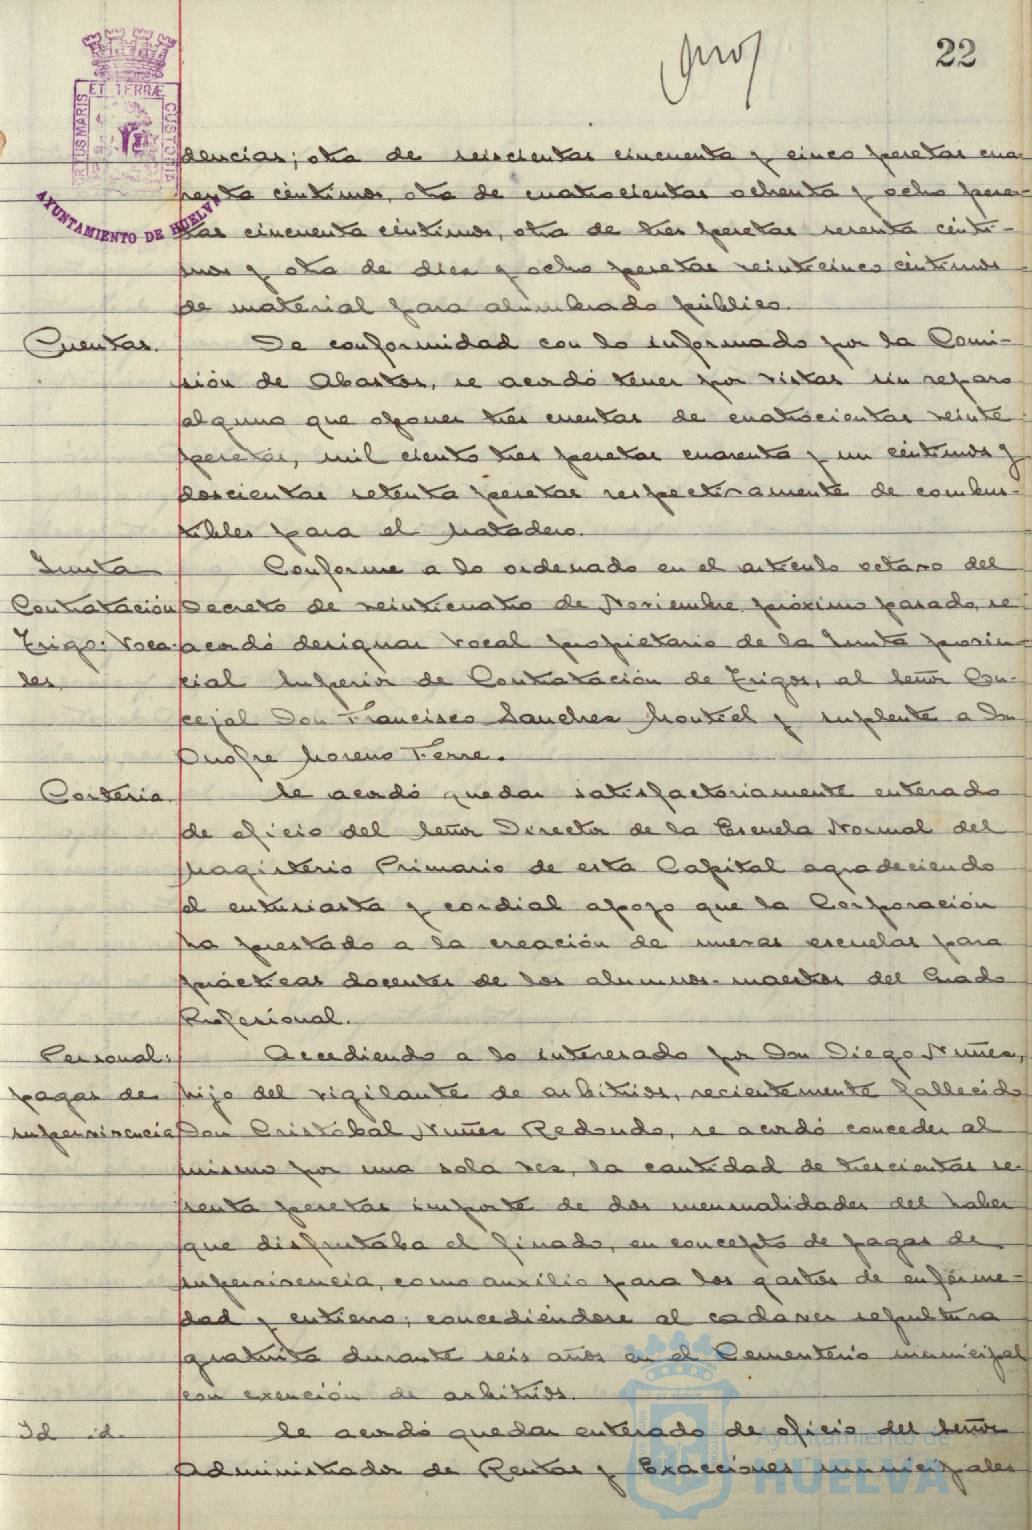 22
PORTUS MARIS ET TERRÆ CUSTODIA
AYUNTAMIENTO DE HUELVA
dencias; otra de seiscientas cincuenta y cinco pesetas cua-
renta céntimos, otra de cuatrocientas ochenta y ocho pese-
tas cincuenta céntimos, otra de tres pesetas sesenta cénti-
mos y otra de diez y ocho pesetas veinticinco céntimos
de material para alumbrado público.
Cuentas. De conformidad con lo informado por la Comi-
sión de Abastos, se acordó tener por vistas sin reparo
alguno que oponer tres cuentas de cuatrocientas veinte
pesetas, mil ciento tres pesetas cuarenta y un céntimos y
doscientas setenta pesetas respectivamente de combus-
tibles para el Matadero.
Junta Conforme a lo ordenado en el artículo octavo del
Contratación Decreto de veinticuatro de Noviembre próximo pasado, se
Trigo: Voca- acordó designar Vocal propietario de la Junta provin-
les. cial Superior de Contratación de Trigos, al Señor Con-
cejal Don Francisco Sanchez Montiel y suplente a Don
Onofre Moreno Ferre.
Cortesia. Se acordó quedar satisfactoriamente enterado
de oficio del Señor Director de la Escuela Normal del
Magisterio Primario de esta Capital agradeciendo
el entusiasta y cordial apoyo que la Corporación
ha prestado a la creación de nuevas escuelas para
prácticas docentes de los alumnos-maestros del Grado
Profesional.
Personal: Accediendo a lo interesado por Don Diego Nuñez,
pagas de hijo del vigilante de arbitrios, recientemente fallecido
supervivencia Don Cristóbal Nuñez Redondo, se acordó conceder al
mismo por una sola vez, la cantidad de trescientas se-
senta pesetas importe de dos mensualidades del haber
que disfrutaba el finado, en concepto de pagas de
supervivencia, como auxilio para los gastos de enferme-
dad y entierro; concediéndose al cadaver sepultura
gratuita durante seis años en el Cementerio municipal
con exención de arbitrios.
Id id. Se acordó quedar enterado de oficio del Señor
Administrador de Rentas y Exacciones municipales
Ayuntamiento de
HUELVA